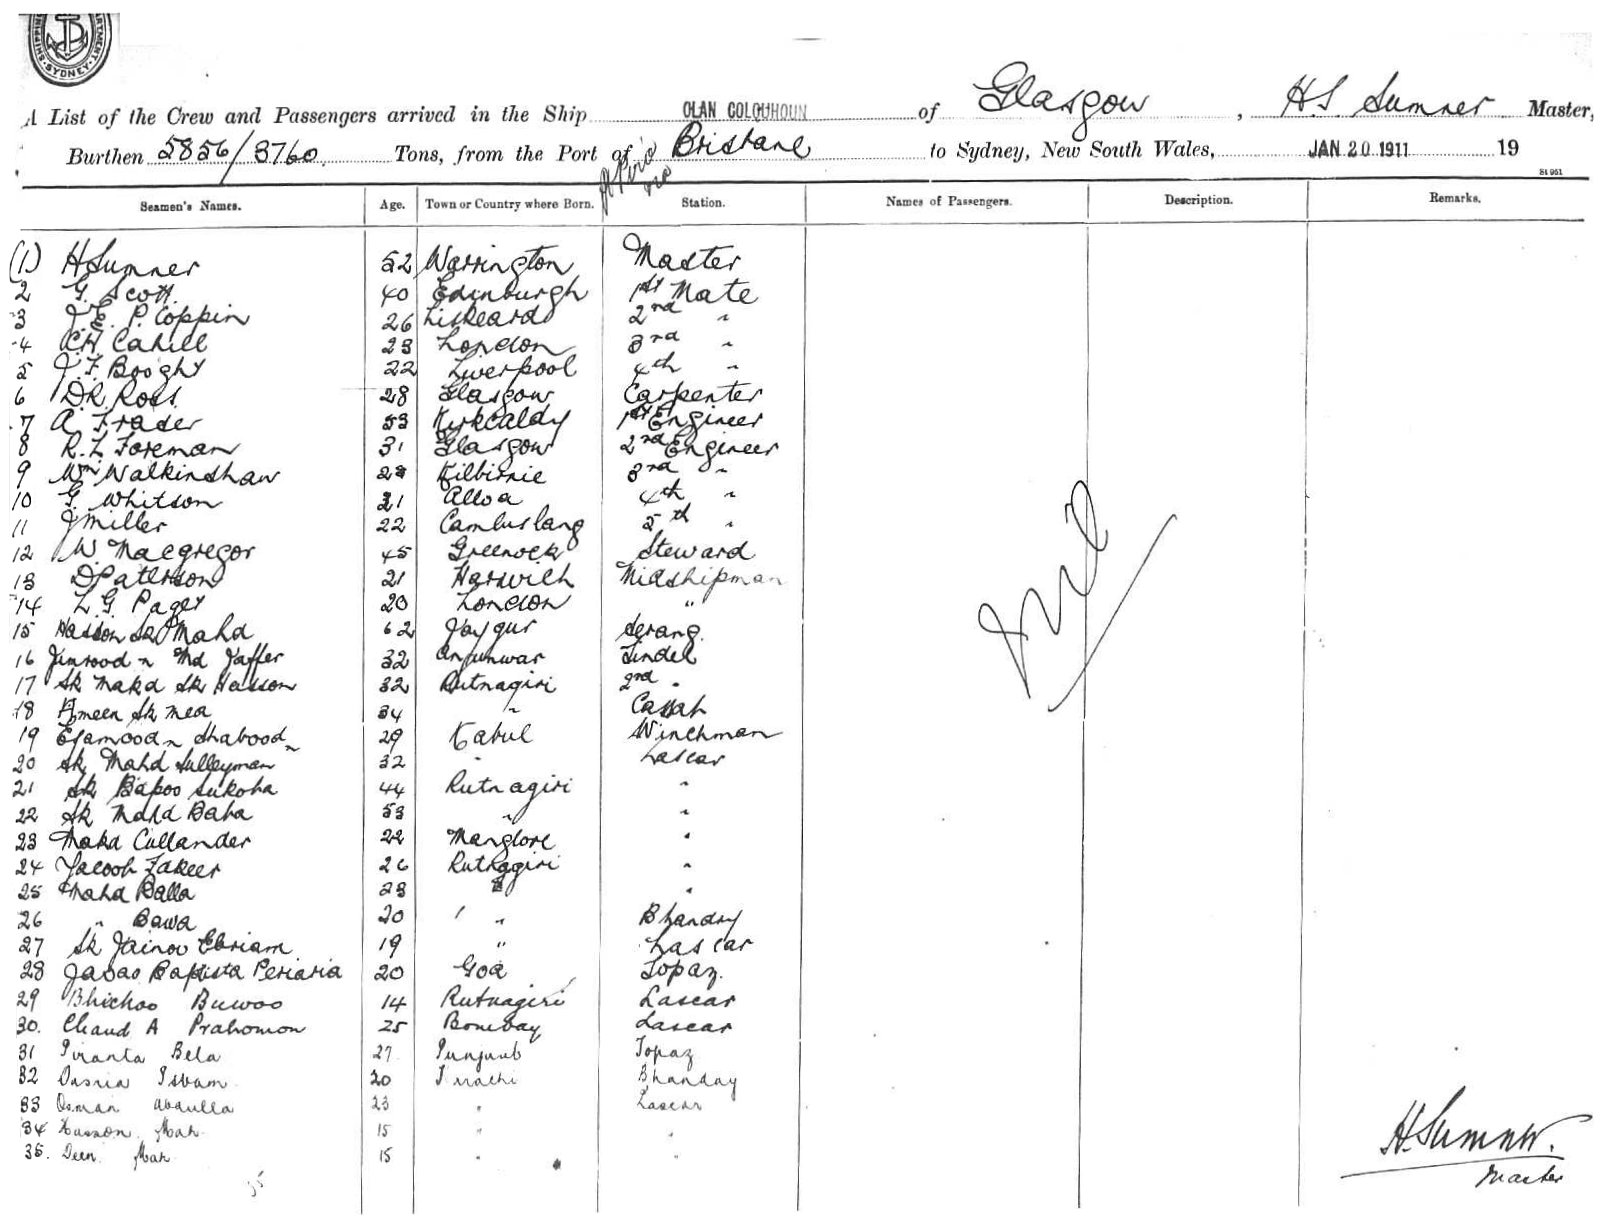 SYDNEY
A List of the Crew and Passengers arrived in the Ship CLAN COLQUHOUN of Glasgow, H S Sumner Master,
Burthen 5856/3760 Tons, from the Port of Brisbane to Sydney, New South Wales, JAN 20 1911 19
Seamen's Names. Age. Town or Country where Born. Station. Names of Passengers. Description. Remarks.
(1) H Sumner 52 Warrington Master
2 G. Scott. 40 Edinburgh 1st Mate
3 J. E. P. Coppin 26 Liskeard 2nd "
4 C H Cahill 23 London 3rd "
5 J. F. Booghy 22 Liverpool 4th "
6 D R Ross. 28 Glasgow Carpenter
7 A. Frader 53 Kirkcaldy 1st Engineer
8 R. L Foreman 31 Glasgow 2nd Engineer
9 Wm Walkinshaw 28 Kilbirnie 3rd "
10 G. Whitson 31 Alloa 4th "
11 J Miller 22 Cambuslang 5th "
12 W. Macgregor 45 Greenock Steward
13 D Paterson 21 Harwich Midshipman
14 L. G. Paget 20 London "
15 Hasson Sk Mahd 62 Joygur Serang.
16 Md Jaffer 32 Anjunwar Tindel
17 Sk Mahd Sk Hasson 32 Rutnagiri 2nd "
18 Ameen Sk Mea 34 " Cassab
19 Esamoodn Shaboodn 29 Kabul Winchman
20 Sk Mahd Sulleyman 32 " Lascar
21 Sk Bapoo Sukoha 44 Rutnagiri "
22 Sk Mahd Baba 53 " "
23 Mahd Cullander 22 Manglore "
24 Yacoob Fakeer 26 Rutnagiri "
25 Mahd Balla 23 " "
26 " Bawa 20 " Bhandry
27 Sk Jainoo Ebriam 19 " Lascar
28 Jaoao Baptista Periaria 20 Goa Topaz.
29 Bhichoo Buwoo 14 Rutnagiri Lascar
30. Chaud A Prahomon 25 Bombay Lascar
31 Piranta Bela 27 Punjaub Topaz
32 20 Bhanday
33 Osman Abdulla 23 " Lascar
34 Hasson Mah. 15 " "
35. Deen Mah 15 " "
Nil
35
H. Sumner.
Master